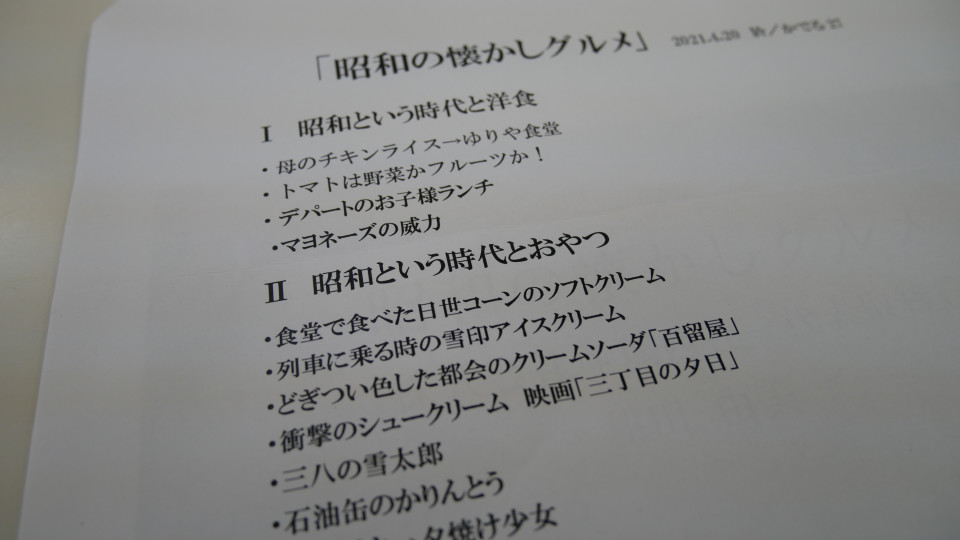 「昭和の懐かしグルメ」 2021.4.20 於／かでる27
Ⅰ 昭和という時代と洋食
・母のチキンライス→ゆりや食堂
・トマトは野菜かフルーツか！
・デパートのお子様ランチ
・マヨネーズの威力
Ⅱ 昭和という時代とおやつ
・食堂で食べた日世コーンのソフトクリーム
・列車に乗る時の雪印アイスクリーム
・どぎつい色した都会のクリームソーダ「百留屋」
・衝撃のシュークリーム 映画「三丁目の夕日」
・三八の雪太郎
・石油缶のかりんとう
夕焼け少女